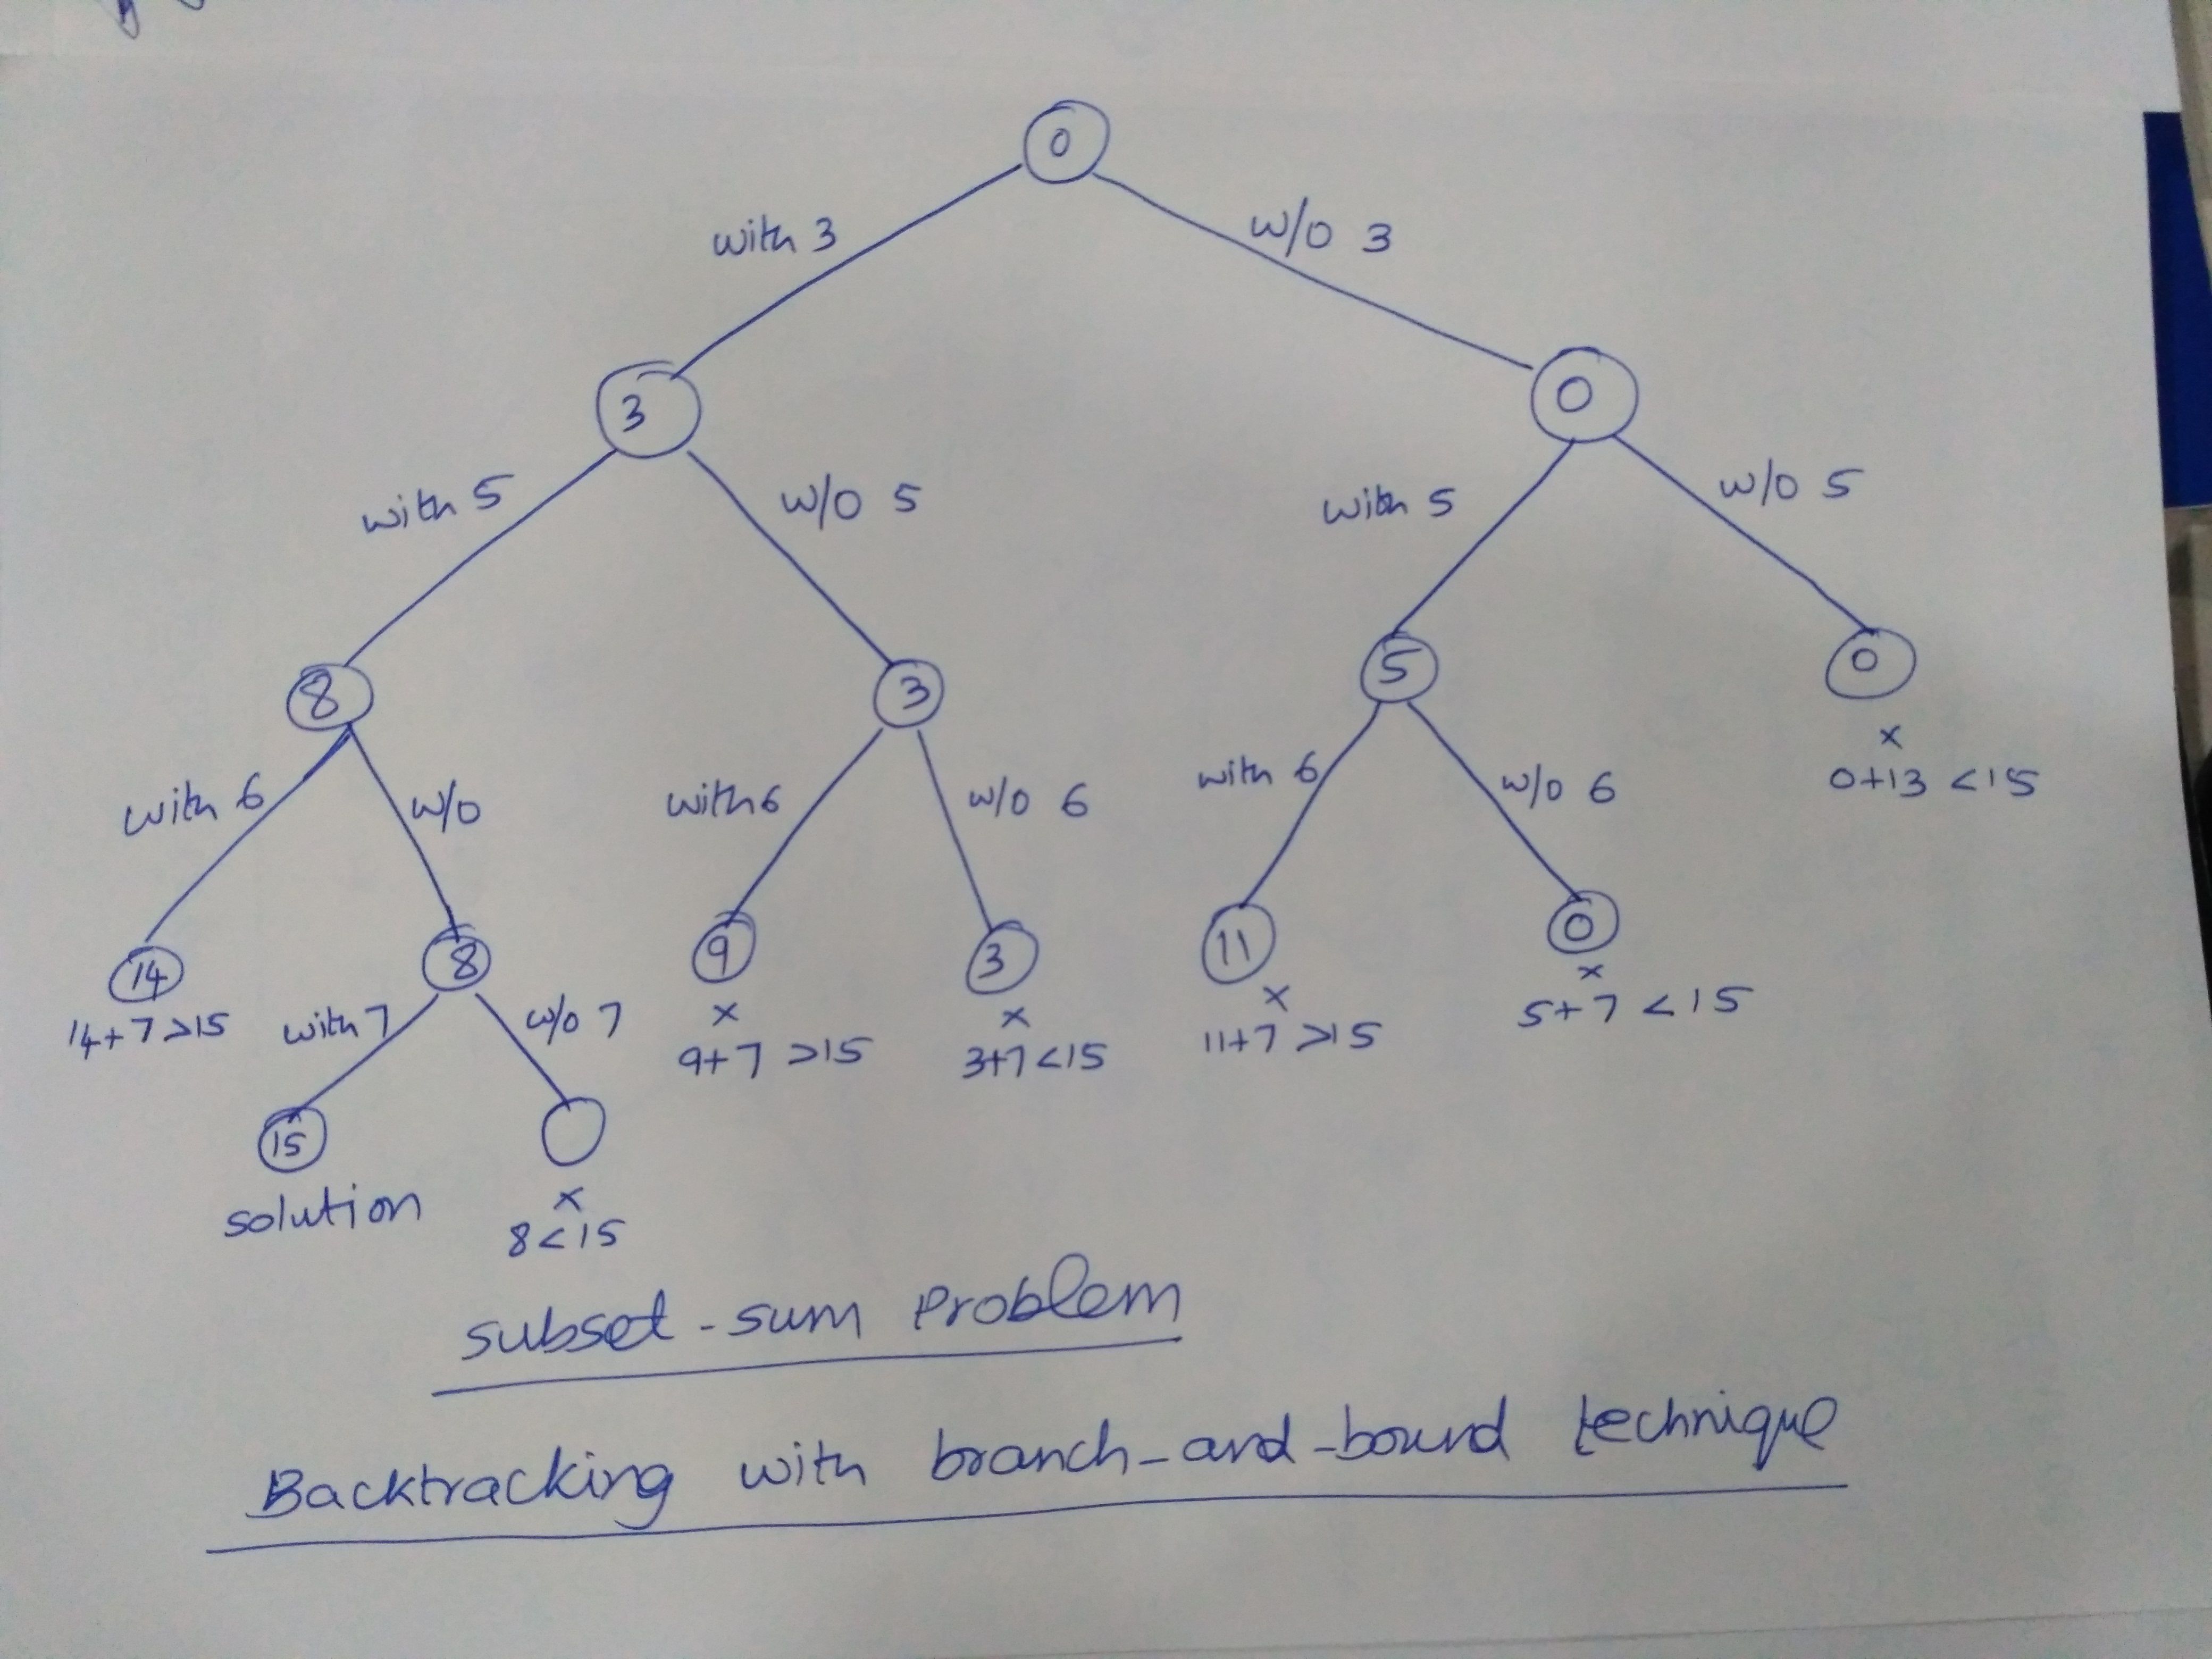 0
with 3 w/o 3
3 0
with 5 w/o 5 with 5 w/o 5
8 3 5 0
x
0+13 <15
with 6 w/o with 6 w/o 6 with 6 w/o 6
14 8 9 3 11 0
x x x x
14+7 >15 with 7 w/o 7 9+7 >15 3+7 <15 11+7 >15 5+7 <15
15
solution x
8 <15
subset-sum Problem
Backtracking with branch-and-bound technique